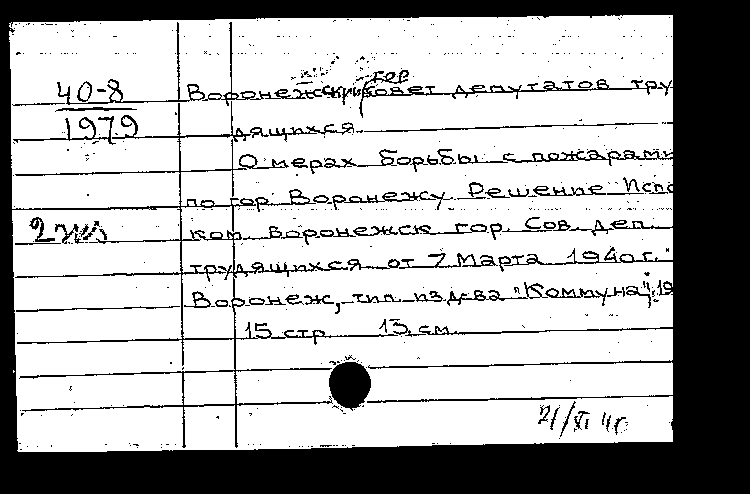 40-8
1979
Воронежский гор совет депутатов тру
дящихся
О мерах борьбы с пожарами
по гор Воронежу. Решение Испо
2 экз
ком. Воронежск гор. Сов. деп.
трудящихся от 7 Марта 1940 г.
Воронеж, тип. изд-ва "Коммуна", 19
15 стр. 13 см.
21/XI 40